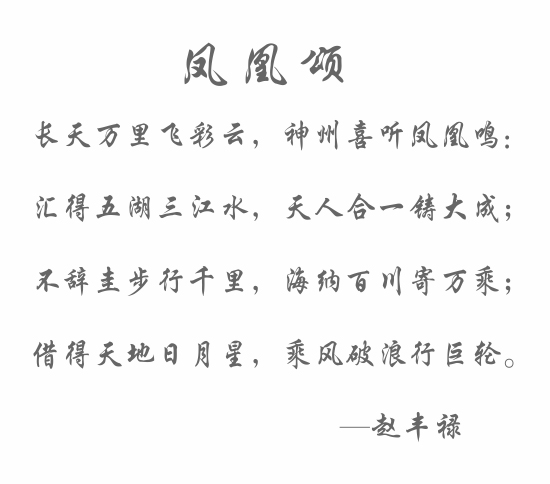 凤凰颂
长天万里飞彩云，神州喜听凤凰鸣：
汇得五湖三江水，天人合一铸大成；
不辞圭步行千里，海纳百川寄万乘；
借得天地日月星，乘风破浪行巨轮。
—赵丰禄